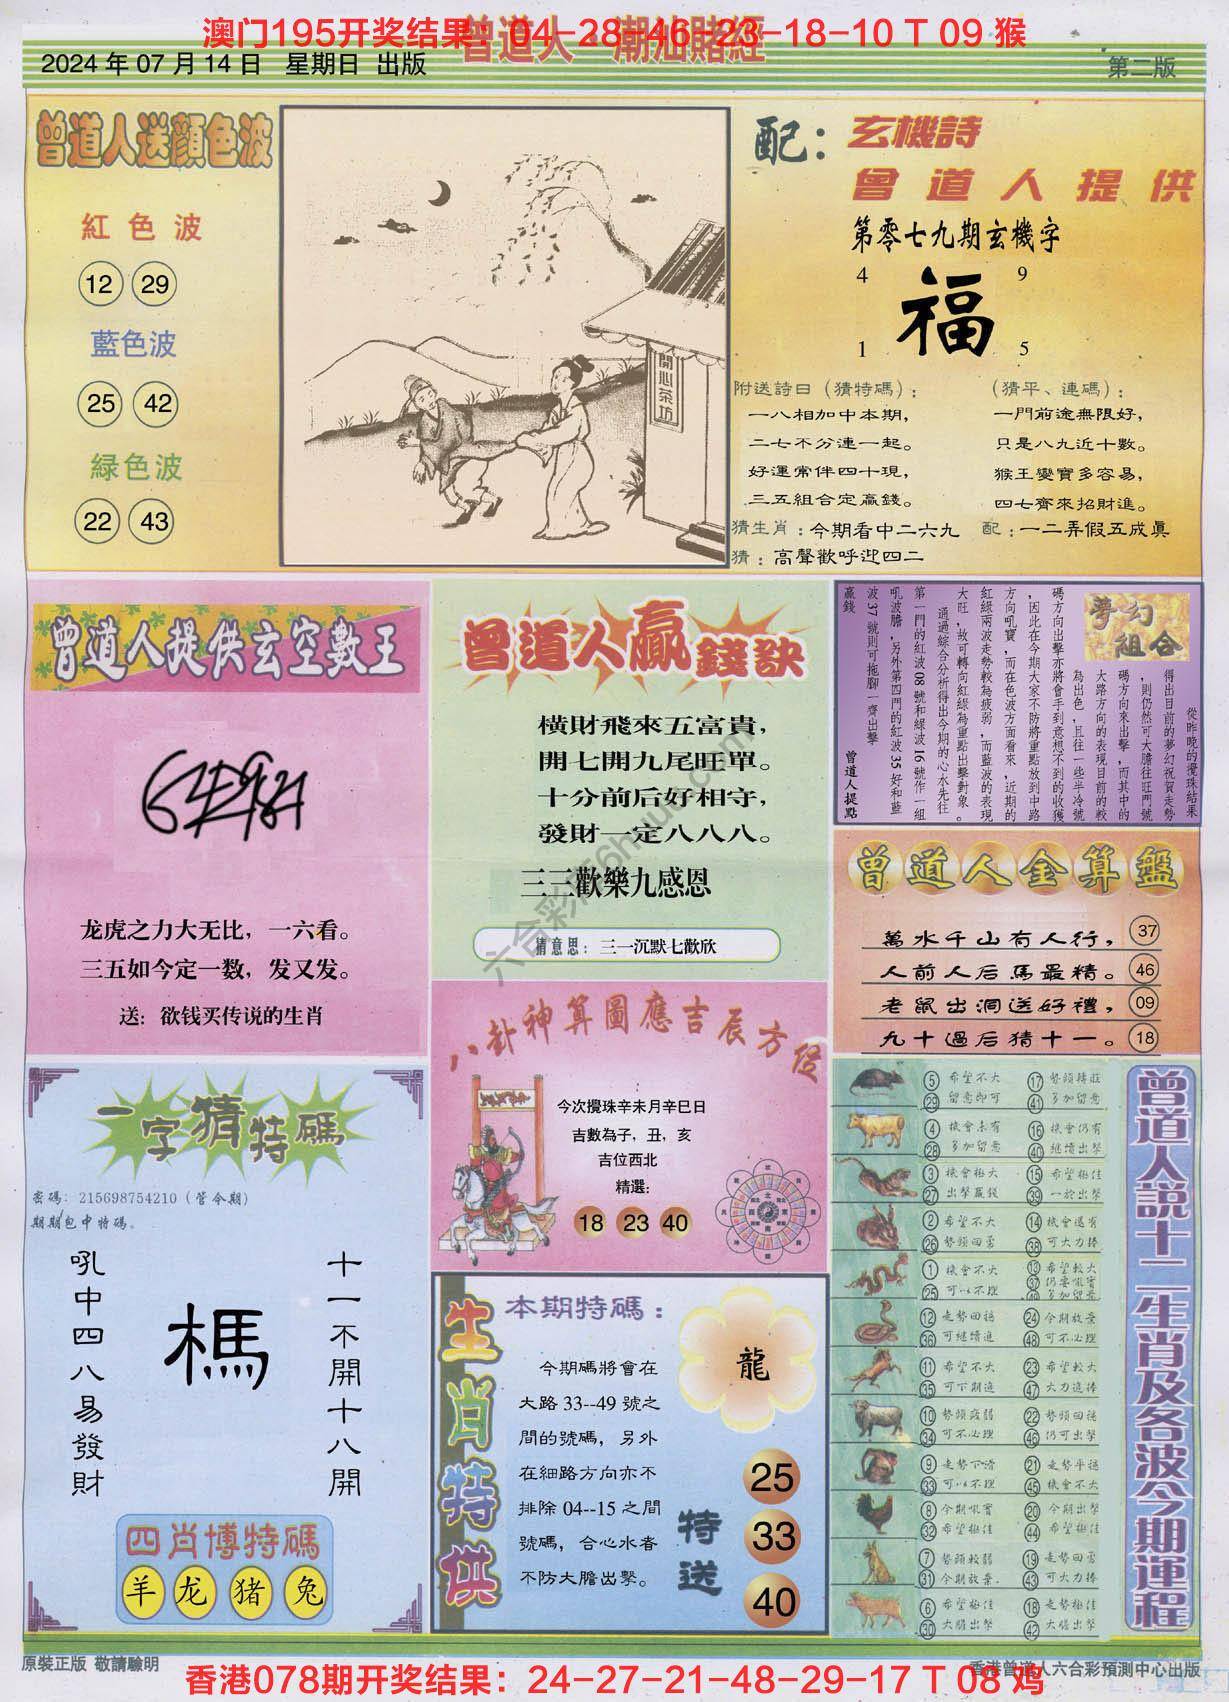 澳门195开奖结果：04-28-46-23-18-10 T 09 猴
曾道人 潮汕賭經
2024 年 07 月 14 日 星期日 出版
第二版
曾道人送顏色波
紅色波
12 29
藍色波
25 42
緑色波
22 43
開心茶坊
配：
玄機詩
曾道人提供
第零七九期玄機字
4 9
福
1 5
附送詩日（猜特碼）：
一八相加中本期，
二七不分連一起。
好運常伴四十現，
三五組合定贏錢。
（猜平、連碼）：
一門前途無限好，
只是八九近十數。
猴王變實多容易，
四七齊來招財進。
猜生肖：今期看中二六九
配：一二弄假五成眞
猜：高聲歡呼迎四二
曾道人提供玄空數王
龙虎之力大无比，一六看。
三五如今定一数，发又发。
送：欲钱买传说的生肖
曾道人贏錢訣
橫財飛來五富貴，
開七開九尾旺單。
十分前后好相守，
發財一定八八八。
三三歡樂九感恩
猜意思：三一沉默七歡欣
夢幻組合
從昨晚的攪珠結果
得出目前的夢幻祝賀走勢
，則仍然可大膽往旺門號
碼方向來出擊，而其中的
大路方向的表現目前的較
為出色，且往一些半冷號
碼方向出擊亦將會手到意想不到的收獲
，因此在今期大家不防將重點放到中路
方向吼寶，而在色波方面看來，近期的
紅綠兩波走勢較為疲弱，而藍波的表現
大旺，故可轉向紅綠為重點出擊對象。
通過綜合分析得出今期的心水先往
第一門的紅波 08 號和綠波 16 號作一組
吼波膽，另外第四門的紅波 35 好和藍
波 37 號則可拖腳一齊出擊
贏錢
曾道人提點
曾道人金算盤
萬水千山有人行， 37
人前人后馬最精。 46
老鼠出洞送好禮， 09
九十過后猜十一。 18
八卦神算圖應吉辰方位
今次攪珠辛未月辛巳日
吉數為子，丑，亥
吉位西北
精選：
18 23 40
一字猜特碼
密碼：215698754210（管令期）
期期包中特碼。
吼中四八易發財
榪
十一不開十八開
四肖博特碼
羊 龙 猪 兔
生肖特供
本期特碼：
龍
今期碼將會在
大路 33--49 號之
間的號碼，另外
在細路方向亦不
排除 04--15 之間
號碼，合心水者
不防大膽出擊。
特送
25
33
40
曾道人説十二生肖及各波今期運程
5 希望不大 17 勢頭轉旺
29 留意即可 41 多加留意
4 機會未有 16 機會仍有
28 多加留意 40 繼續出擊
3 機會極大 15 希望極佳
27 出擊贏錢 39 一於出擊
2 希望不大 14 機會還有
26 勢頭回勇 38 可大力捧
1 機會不大 13 希望較大
25 可以不理 37 仍要吼實
49 多加留意
12 走勢回穩 24 今期放棄
36 可繼續追 48 可不必理
11 希望不大 23 希望較大
35 可下期追 47 大力追捧
10 勢頭疲弱 22 勢頭回穩
34 可不必理 46 仍可出擊
9 走勢下滑 21 走勢平穩
33 可以不理 45 機會不大
8 今期吼實 20 今期出擊
32 希望極佳 44 希望極佳
7 勢頭較弱 19 走勢回勇
31 今期放棄. 43 可大力捧
6 希望極佳 18 走勢極佳
30 大膽出擊 42 大膽出擊
六合彩库6huuu.com
原裝正版 敬請驗明
香港曾道人六合彩預測中心出版
香港078期开奖结果：24-27-21-48-29-17 T 08 鸡